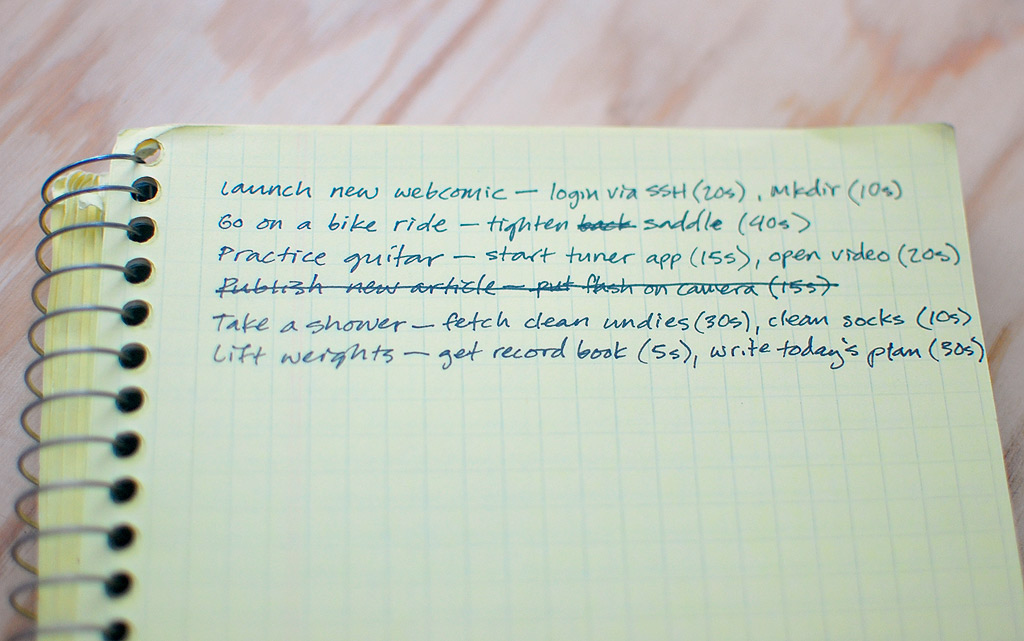 Launch new webcomic – login via SSH (20s), mkdir (10s)
Go on a bike ride – tighten back saddle (40s)
Practice guitar – start tuner app (15s), open video (20s)
Publish new article – put flash on camera (15s)
Take a shower – fetch clean undies (30s), clean socks (10s)
Lift weights – get record book (5s), write today's plan (30s)